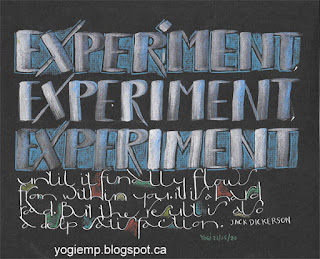 EXPERIMENT,
EXPERIMENT,
EXPERIMENT
until it finally flows
from within you. it is a hard
road. But the result is also
a deep satisfaction. JACK DICKERSON
Yogi
yogiemp.blogspot.ca